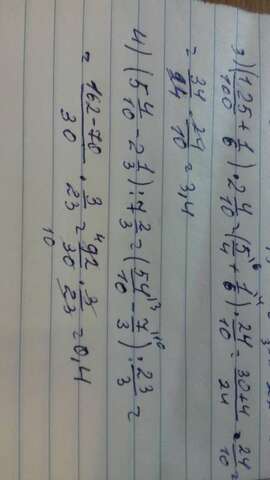 3) (1 25/100 + 1/6) · 2 4/10 = (5/4 \6 + 1/6 \4) · 24/10 = 30+4/24 · 24/10 =
= 34/24 · 24/10 = 3,4
4) (5 4/10 - 2 1/3) : 7 2/3 = (54/10 \3 - 7/3 \10) : 23/3 =
= 162-70/30 · 3/23 = 4 92/30 10 · 3/23 = 0,4